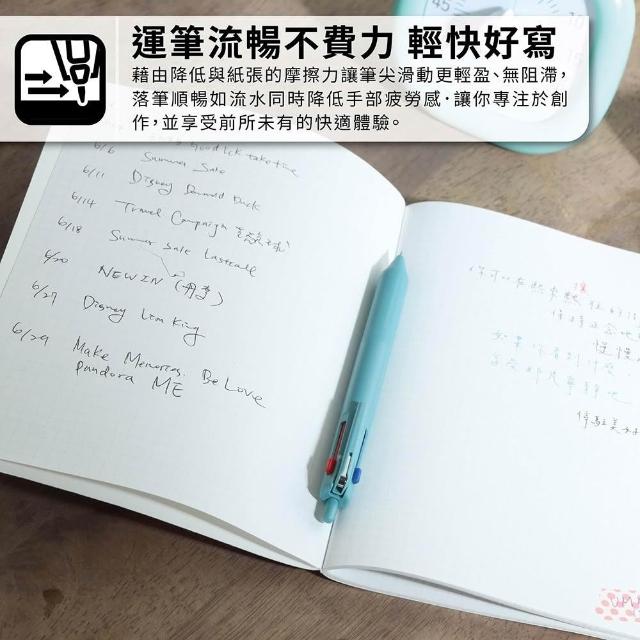 運筆流暢不費力 輕快好寫
藉由降低與紙張的摩擦力讓筆尖滑動更輕盈、無阻滯，
落筆順暢如流水同時降低手部疲勞感．讓你專注於創
作，並享受前所未有的快適體驗。
45
6/6 Summer Sale
6/11 Disney Donald Duck
6/14 Travel Campaign
6/18 Summer Sale Lastcall
6/20 NEW IN
6/27 Disney Lion King
6/29 Make Memories. Be Love
Pandora ME
你可以在
慢慢
如果你看到